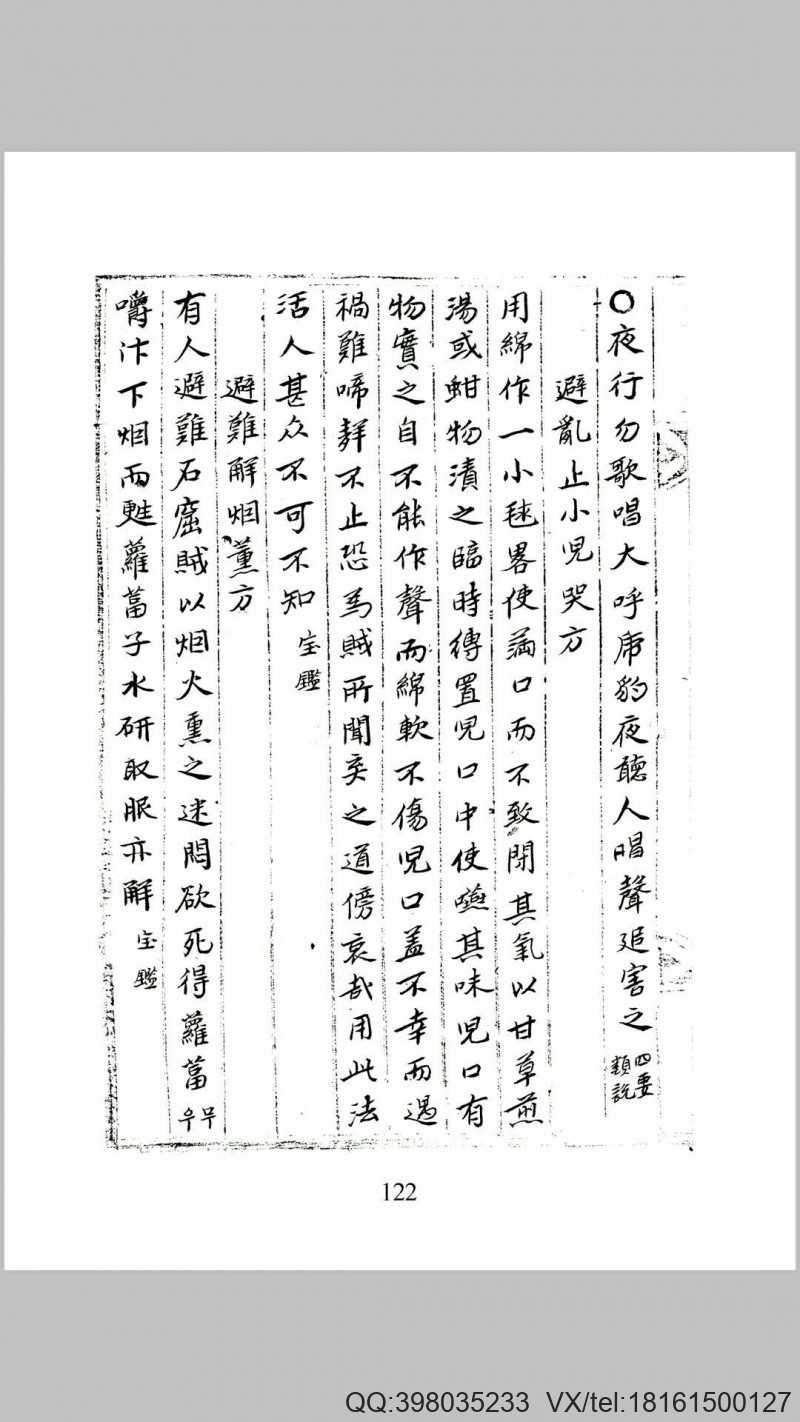 〇夜行勿歌唱大呼虎豹夜聽人唱聲追害之 四要類說
避亂止小児哭方
用綿作一小毬畧使滿口而不致閉其氣以甘草煎
湯或甜物漬之臨時縳置児口中使嚥其味児口有
物實之自不能作聲而綿軟不傷児口盖不幸而遇
禍難啼聲不止恐為賊所聞棄之道傍哀哉用此法
活人甚众不可不知 宝鑑
避難解烟薰方
有人避難石窟賊以烟火熏之迷悶欲死得蘿葍 무우
嚼汁下烟而甦蘿葍子水研取服亦解 宝鑑
122
QQ:398035233 VX/tel:18161500127